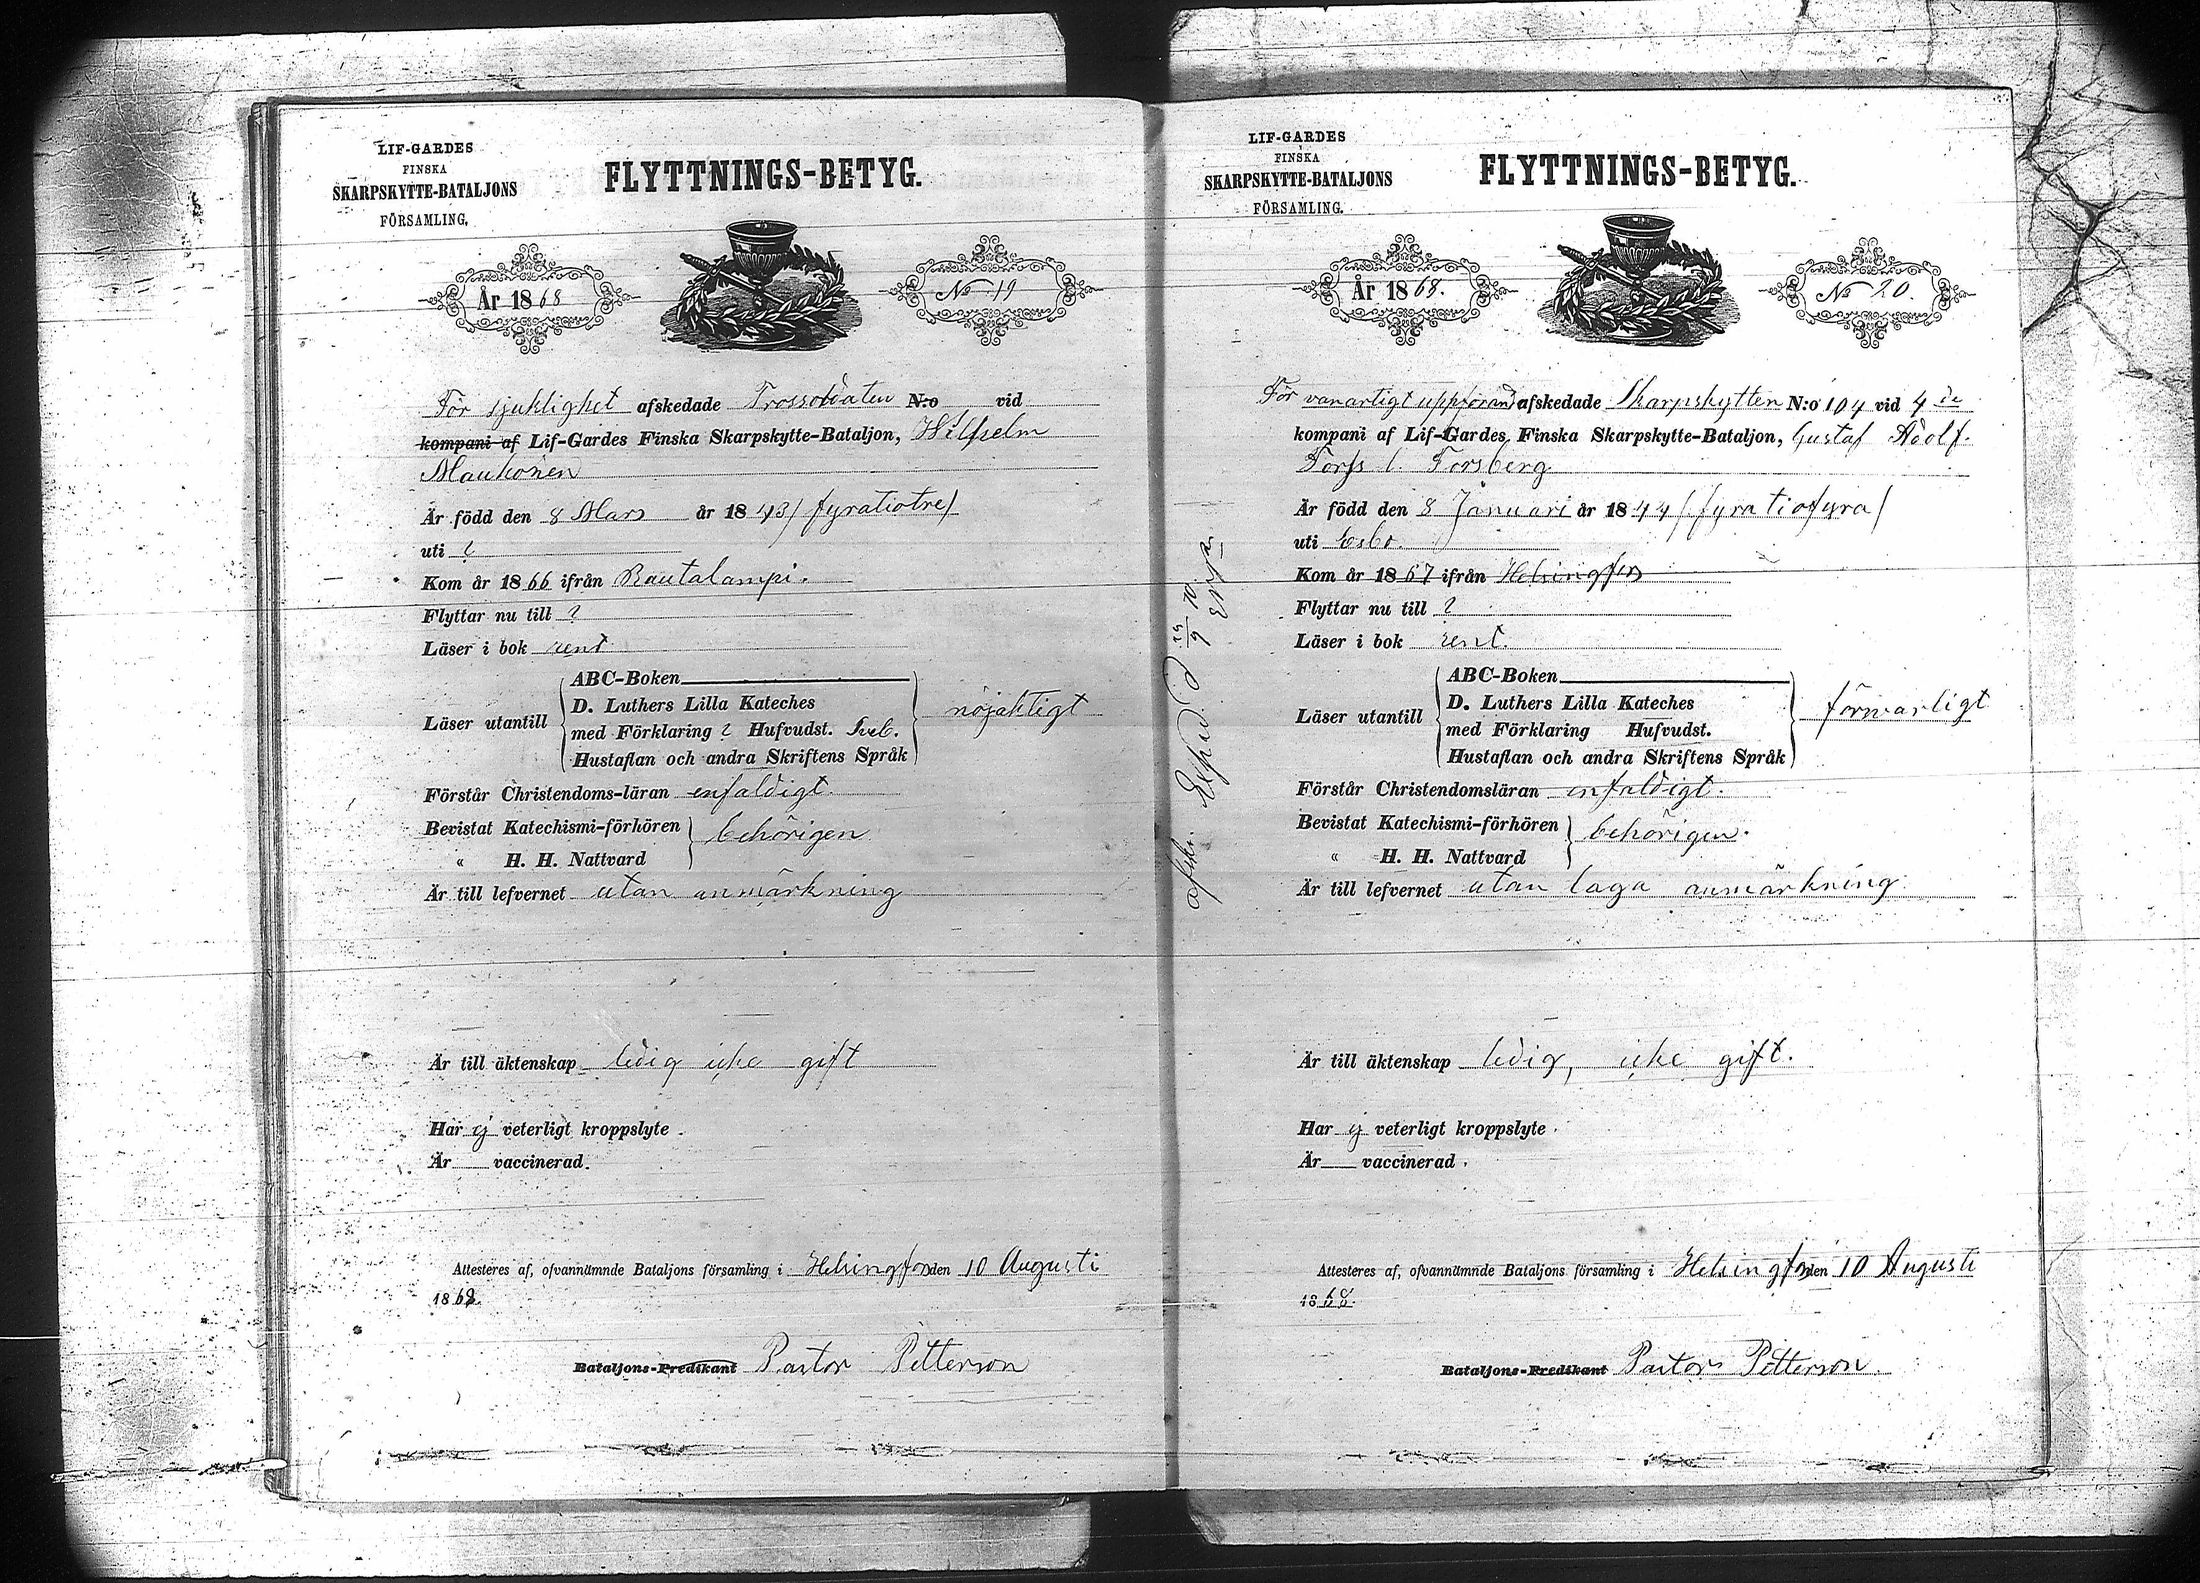 LIF-GARDES
FINSKA
SKARPSKYTTE-BATALJONS
FÖRSAMLING.
FLYTTNINGS-BETYG.
År 1868
No 19
För sjuklighet afskedade Trossoldaten N:o vid
kompani af Lif-Gardes Finska Skarpskytte-Bataljon, Wilhelm
Maukonen
Är född den 8 Mars år 1843 / fyratiotre /
uti ?
Kom år 1866 ifrån Rautalampi.
Flyttar nu till ?
Läser i bok rent
Läser utantill
ABC-Boken
D. Luthers Lilla Kateches
med Förklaring 2 Hufvudst.
Hustaflan och andra Skriftens Språk
nöjaktigt
Förstår Christendoms-läran enfaldigt.
Bevistat Katechismi-förhören
" H. H. Nattvard
behörigen
Är till lefvernet utan anmärkning
Är till äktenskap ledig icke gift
Har ej veterligt kroppslyte.
Är vaccinerad.
Attesteres af, ofvannämnde Bataljons församling i Helsingfors den 10 Augusti
1868.
Bataljons-Predikant Pastor Petterson
LIF-GARDES
FINSKA
SKARPSKYTTE-BATALJONS
FÖRSAMLING.
FLYTTNINGS-BETYG.
År 1868.
No 20.
För vanartigt uppförande afskedade Skarpskytten N:o 104 vid 4de
kompani af Lif-Gardes Finska Skarpskytte-Bataljon, Gustaf Adolf
Forss l. Forsberg
Är född den 8 Januari år 1844 / fyratiofyra /
uti Esbo.
Kom år 1867 ifrån Helsingfors
Flyttar nu till ?
Läser i bok rent.
Läser utantill
ABC-Boken
D. Luthers Lilla Kateches
med Förklaring Hufvudst.
Hustaflan och andra Skriftens Språk
försvarligt
Förstår Christendomsläran enfaldigt.
Bevistat Katechismi-förhören
" H. H. Nattvard
behörigen.
Är till lefvernet utan laga anmärkning.
Är till äktenskap ledig, icke gift.
Har ej veterligt kroppslyte.
Är vaccinerad.
Attesteres af, ofvannämnde Bataljons församling i Helsingfors den 10 Augusti
1868.
Bataljons-Predikant Pastor Petterson.